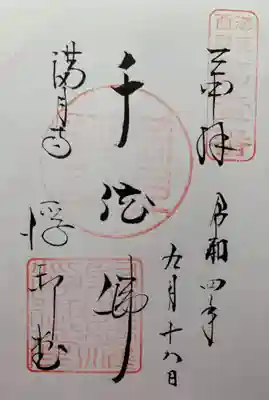 奉拝
令和四年
九月十八日
千体佛
満月寺
浮御堂